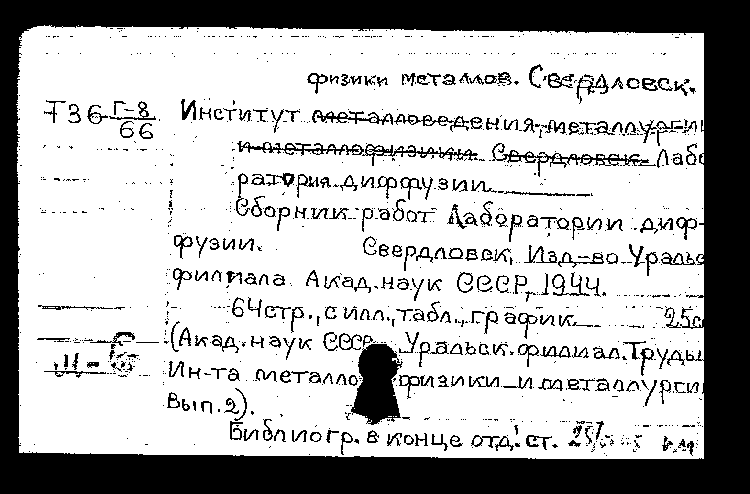 физики металлов. Свердловск.
Т36 Г-8
66
Институт металловедения, металлургии
и металлофизики. Свердловск. Лабо
ратория диффузии.
Сборник работ Лаборатории диф-
фузии. Свердловск, Изд-во Уральс
филиала Акад. наук СССР, 1944.
64стр., с илл., табл., график. 25с
(Акад. наук СССР. Уральск. филиал. Труды
Ин-та металло физики и металлургии
Вып. 2).
Библиогр. в конце отд. ст.